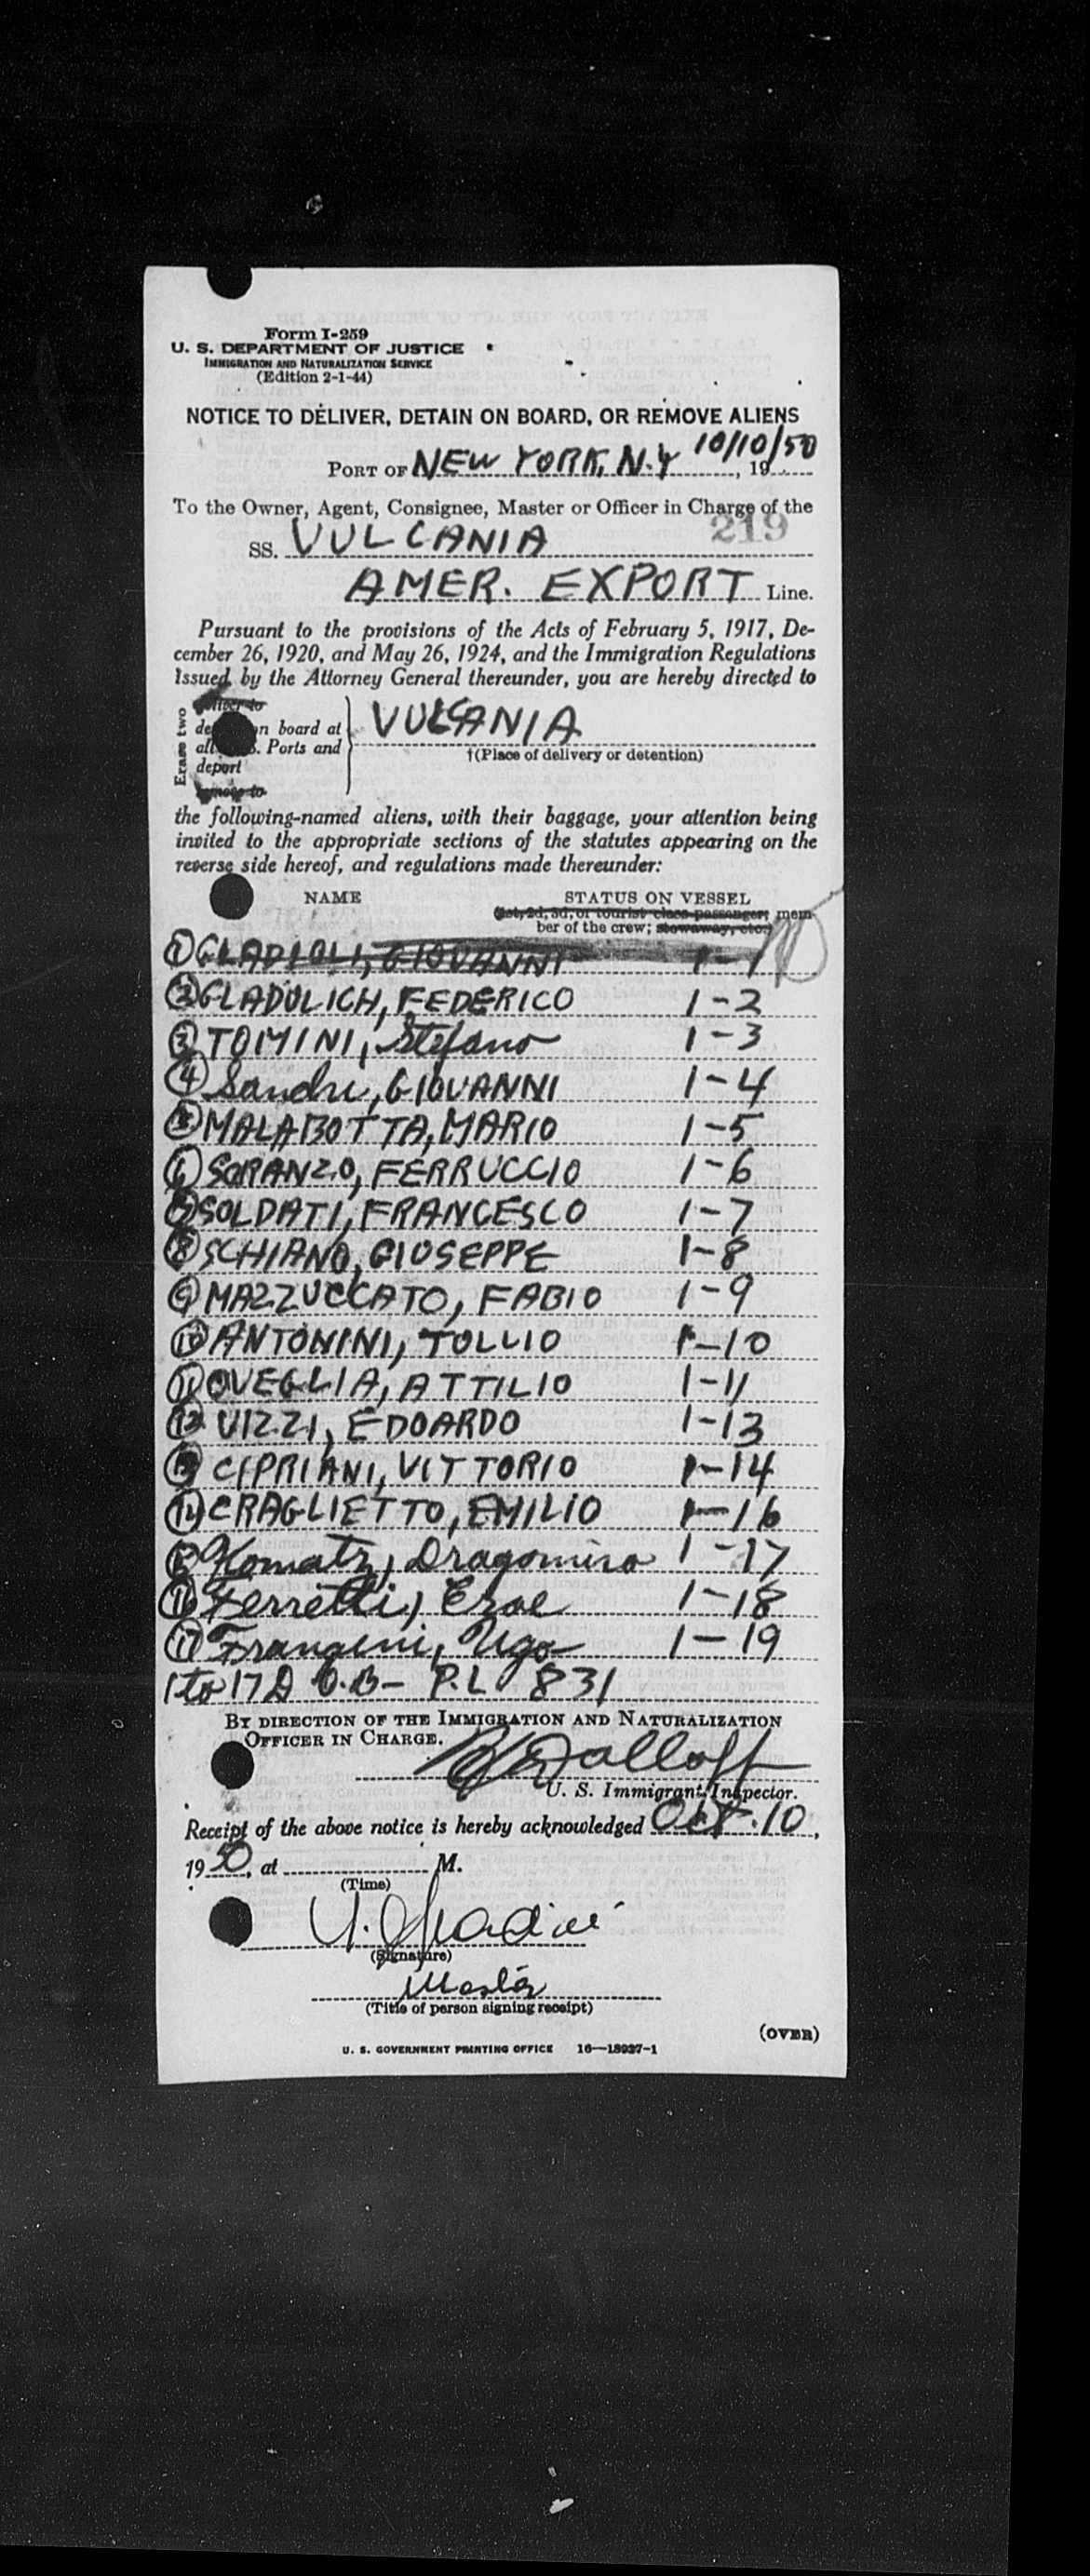 Form I-259
U. S. DEPARTMENT OF JUSTICE
IMMIGRATION AND NATURALIZATION SERVICE
(Edition 2-1-44)
NOTICE TO DELIVER, DETAIN ON BOARD, OR REMOVE ALIENS
PORT OF NEW YORK, N.Y 10/10/50, 19
To the Owner, Agent, Consignee, Master or Officer in Charge of the
219
SS. VULCANIA
AMER. EXPORT Line.
Pursuant to the provisions of the Acts of February 5, 1917, De-
cember 26, 1920, and May 26, 1924, and the Immigration Regulations
issued by the Attorney General thereunder, you are hereby directed to
Erase two
deliver to
on board at
Ports and
deport
remove to
VULCANIA
†(Place of delivery or detention)
the following-named aliens, with their baggage, your attention being
invited to the appropriate sections of the statutes appearing on the
reverse side hereof, and regulations made thereunder:
NAME STATUS ON VESSEL
(1st, 2d, 3d, or tourist class passenger; mem-
ber of the crew; stowaway, etc.)
1 GLADIOLI, GIOVANNI 1-1
2 GLADULICH, FEDERICO 1-2
3 TOMINI, Stefano 1-3
4 Sandri, GIOVANNI 1-4
5 MALABOTTA, MARIO 1-5
6 SORANZO, FERRUCCIO 1-6
7 SOLDATI, FRANCESCO 1-7
8 SCHIANO, GIUSEPPE 1-8
9 MAZZUCCATO, FABIO 1-9
10 ANTONINI, TULLIO 1-10
11 OVEGLIA, ATTILIO 1-11
12 VIZZI, EDOARDO 1-13
13 CIPRIANI, VITTORIO 1-14
14 CRAGLIETTO, EMILIO 1-16
15 Komatz, Dragomiro 1-17
16 Ferretti, Eroe 1-18
17 Frangini, Ugo 1-19
1 to 17 D O.B- P.L 831
BY DIRECTION OF THE IMMIGRATION AND NATURALIZATION
OFFICER IN CHARGE.
U. S. Immigrant Inspector.
Receipt of the above notice is hereby acknowledged Oct. 10,
1950, at M.
(Time)
(Signature)
Master
(Title of person signing receipt)
(OVER)
U. S. GOVERNMENT PRINTING OFFICE 16—18937-1